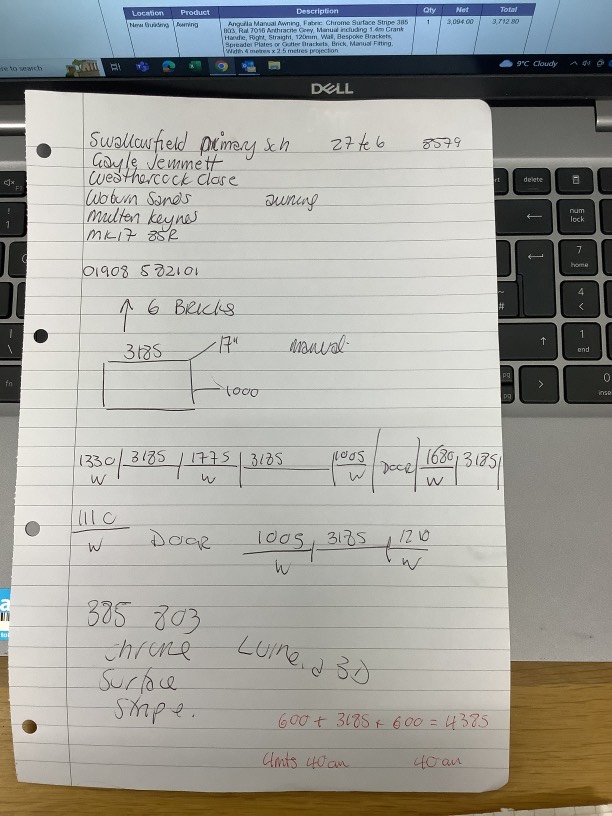 Location Product Description Qty Net Total
New Building Awning Anguilla Manual Awning, Fabric: Chrome Surface Stripe 385 1 3,094.00 3,712.80
803, Ral 7016 Anthracite Grey, Manual including 1.4m Crank
Handle, Right, Straight, 120mm, Wall, Bespoke Brackets,
Spreader Plates or Gutter Brackets, Brick, Manual Fitting,
Width 4 metres x 2.5 metres projection
re to search
9°C Cloudy
DELL
Swallowsfield primary sch 27 feb 8579
Gayle Jemmett
Weathercock close
Woburn Sands awning
Multen Keynes
MK17 8SR
01908 582101
↑ 6 Bricks
3185 17" manual
1000
1330 3185 1775 3185 1005 DOOR 1680 3185
W W W W
1110
W DOOR 1005 3185 1210
W W
385 803
chrome
Surface
Stripe.
600 + 3185 + 600 = 4385
4mts 40cm 40cm
delete
num
lock
7
home
4
1
end
0
fn
pg
pg